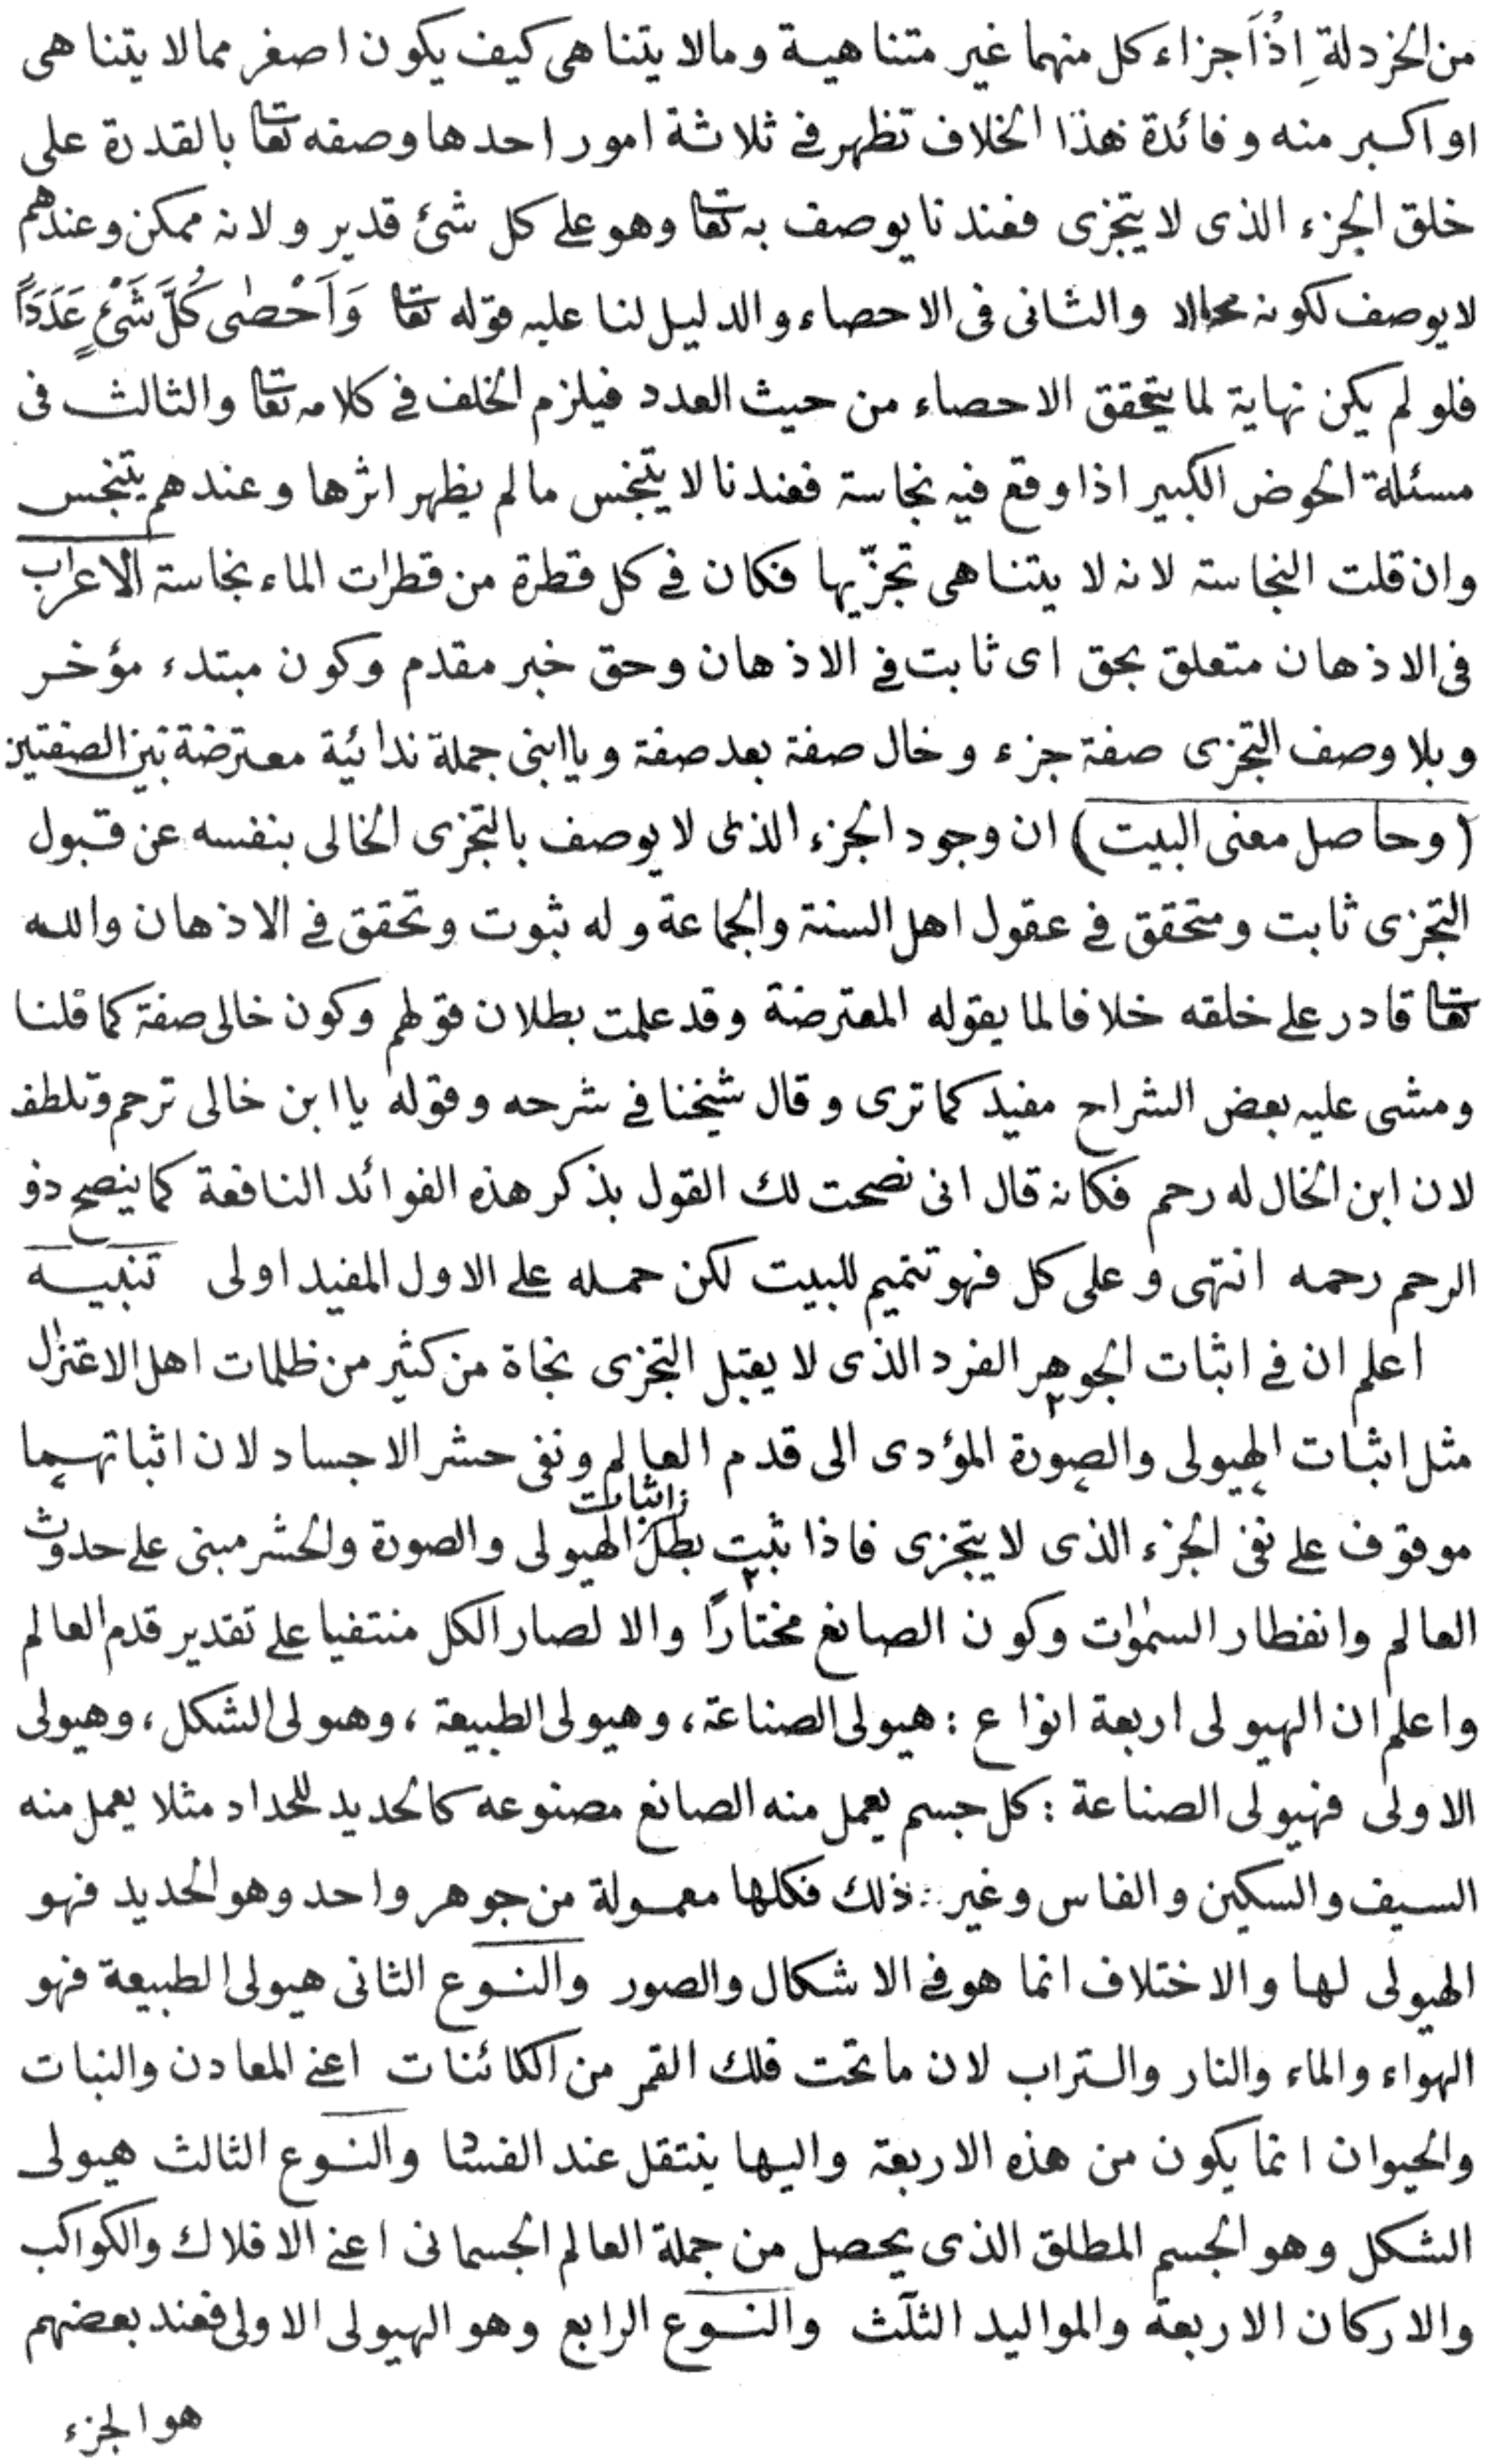 من الخردلة اِذْ اَجزاء كل منهما غير متناهية وما لا يتناهى كيف يكون اصغر مما لا يتناهى
او اكبر منه وفائدة هذا الخلاف تظهر فى ثلاثة امور احدها وصفه تعا بالقدرة على
خلق الجزء الذى لا يتجزى فعندنا يوصف به تعا وهو على كل شئ قدير ولانه ممكن وعندهم
لا يوصف لكونه محالا والثانى فى الاحصاء والدليل لنا عليه قوله تعا وَاَحْصٰى كُلَّ شَىْءٍ عَدَدًا
فلو لم يكن نهاية لما يتحقق الاحصاء من حيث العدد فيلزم الخلف فى كلامه تعا والثالث فى
مسئلة الحوض الكبير اذا وقع فيه نجاسة فعندنا لا يتنجس ما لم يظهر اثرها وعندهم يتنجس
وان قلت النجاسة لانه لا يتناهى تجزّيها فكان فى كل قطرة من قطرات الماء نجاسة الاعراب
فى الاذهان متعلق بحق اى ثابت فى الاذهان وحق خبر مقدم وكون مبتدء مؤخر
وبلا وصف التجزى صفة جزء وخال صفة بعد صفة ويا ابنى جملة ندائية معترضة بين الصفتين
(وحاصل معنى البيت) ان وجود الجزء الذى لا يوصف بالتجزى الخالى بنفسه عن قبول
التجزى ثابت ومتحقق فى عقول اهل السنة والجماعة وله ثبوت وتحقق فى الاذهان والله
تعا قادر على خلقه خلافا لما يقوله المعترضة وقد علمت بطلان قولهم وكون خالى صفة كما قلنا
ومشى عليه بعض الشراح مفيد كما ترى وقال شيخنا فى شرحه وقوله يا ابن خالى ترحم وتلطف
لان ابن الخال له رحم فكانه قال انى نصحت لك القول بذكر هذه الفوائد النافعة كما ينصح ذو
الرحم رحمه انتهى وعلى كل فهو تتميم للبيت لكن حمله على الاول المفيد اولى تنبيه
اعلم ان فى اثبات الجوهر الفرد الذى لا يقبل التجزى نجاة من كثير من ظلمات اهل الاعتزال
مثل اثبات الهيولى والصورة المؤدى الى قدم العالم ونفى حشر الاجساد لان اثباتهما
موقوف على نفى الجزء الذى لا يتجزى فاذا ثبت بطل اثبات الهيولى والصورة والحشر مبنى على حدوث
العالم وانفطار السمٰوات وكون الصانع مختارًا والا لصار الكل منتفيا على تقدير قدم العالم
واعلم ان الهيولى اربعة انواع : هيولى الصناعة، وهيولى الطبيعة ، وهيولى الشكل ، وهيولى
الاولى فهيولى الصناعة : كل جسم يعمل منه الصانع مصنوعه كالحديد للحداد مثلا يعمل منه
السيف والسكين والفاس وغير ذلك فكلها معمولة من جوهر واحد وهو الحديد فهو
الهيولى لها والاختلاف انما هو فى الاشكال والصور والنوع الثانى هيولى الطبيعة فهو
الهواء والماء والنار والتراب لان ما تحت فلك القمر من الكائنات اعنى المعادن والنبات
والحيوان انما يكون من هذه الاربعة واليها ينتقل عند الفساد والنوع الثالث هيولى
الشكل وهو الجسم المطلق الذى يحصل من جملة العالم الجسمانى اعنى الافلاك والكواكب
والاركان الاربعة والمواليد الثلٰث والنوع الرابع وهو الهيولى الاولى فعند بعضهم
هو الجزء